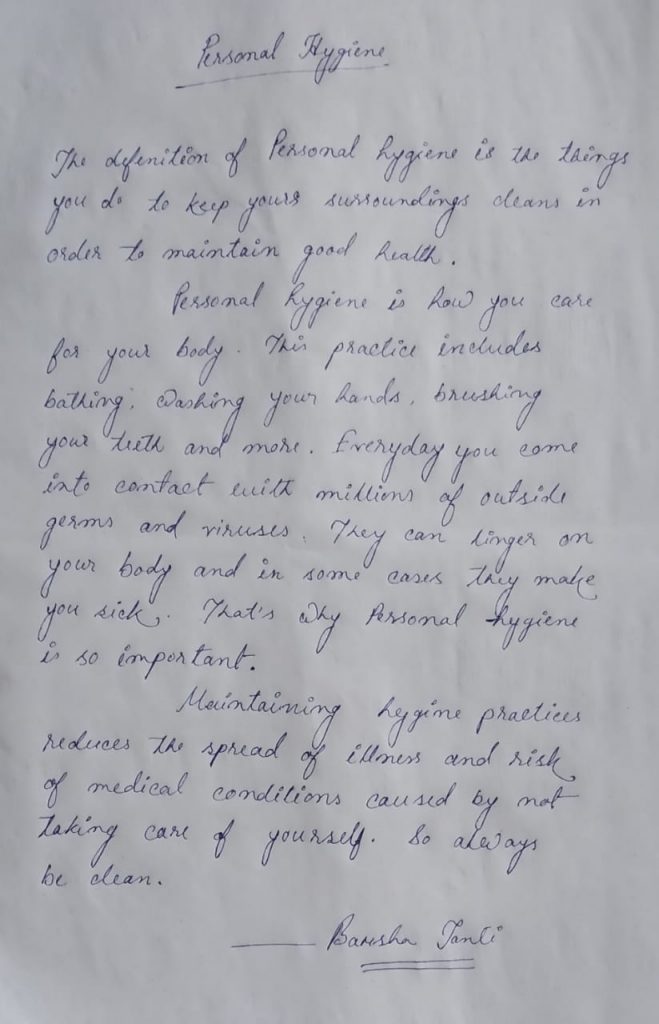 Personal Hygiene
The defenition of Personal hygiene is the things
you do to keep yours surroundings cleans in
order to maintain good health.
Personal hygiene is how you care
for your body. This practice includes
bathing, washing your hands, brushing
your teeth and more. Everyday you come
into contact with millions of outside
germs and viruses. They can linger on
your body and in some cases they make
you sick. That's why Personal hygiene
is so important.
Maintaining hygine practices
reduces the spread of illness and risk
of medical conditions caused by not
taking care of yourself. So always
be clean.
— Barsha Tanti